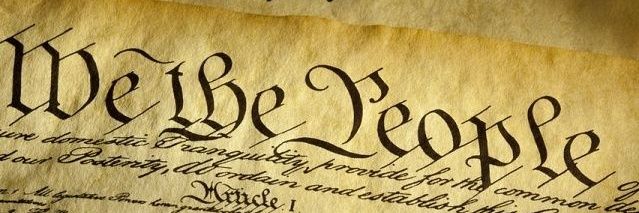 We the People
ure domestic Tranquility, provide for the common
d our Posterity, do ordain and establish this
Article I